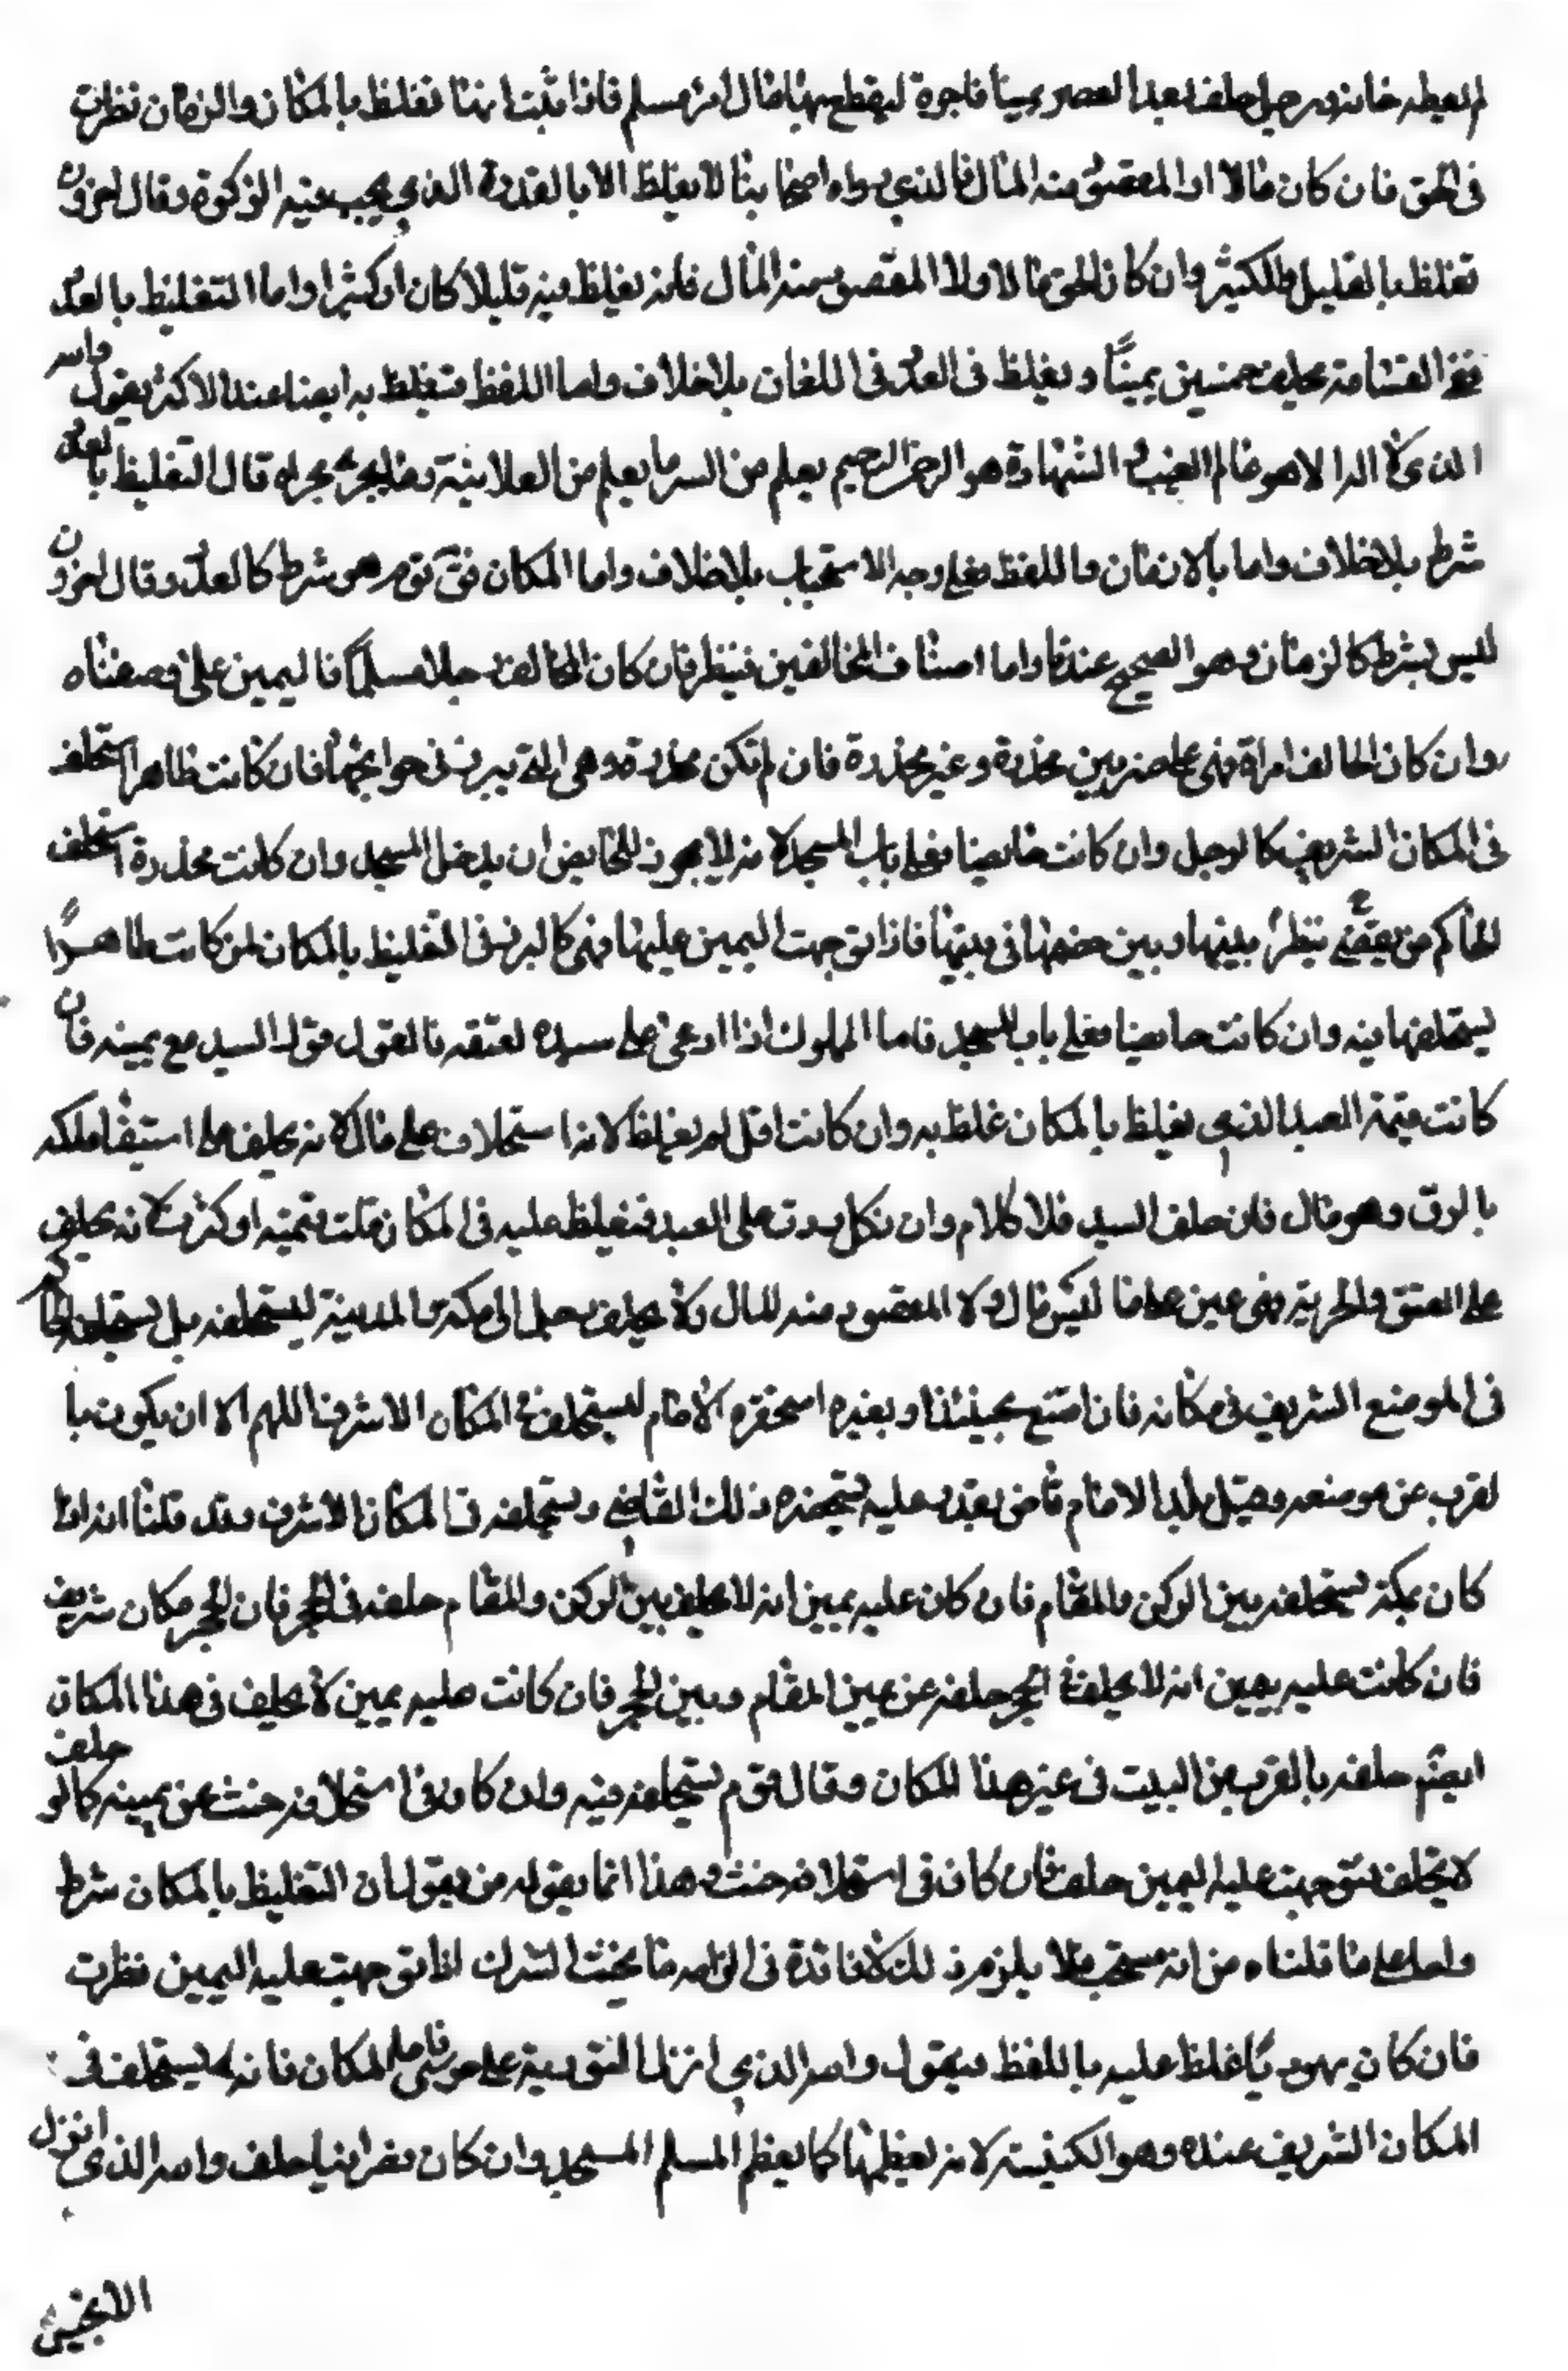 لم يعطه خانه ورجل حلف بعد العصر يمينا فاجرة ليقطع بها مال امرئ مسلم فاذا ثبت انها تغلظ بالمكان والزمان نظرت
فى الحق فان كان مالا او المقصود منه المال فالذي رواه اصحابنا لا يغلظ الا بالقدر الذي يجب فيه الزكوة وقال اخرون
تغلظ بالقليل والكثير وان كان الحق مالا ولا المقصود منه المال فانه يغلظ فيه قليلا كان او كثيرا واما التغليظ بالعدد
ففى القسامة يحلف خمسين يمينًا ويغلظ فى العدد فى اللعان بلا خلاف واما اللفظ فتغلظ به ايضا عند الاكثر يقول والله
الذى لا اله الا هو عالم الغيب والشهادة هو الرحمن الرحيم يعلم من السر ما يعلم من العلانية وما يجرى مجراه قال التغليظ بالعدد
شرط بلا خلاف واما بالازمان واللفظ فعلى وجه الاستحباب بلا خلاف واما المكان فق قوم هو شرط كالعدد وقال اخرون
ليس بشرط كالزمان وهو الصحيح عندنا واما اصناف الحالفين فينظر فان كان الحالف رجلا مسلمًا فاليمين على وصفناه
وان كان الحالف امراة فهى على ضربين مخدرة وغير مخدرة فان لم تكن مخدرة وهى التى تبرز فى حوايجها فان كانت طاهرا استحلف
فى المكان الشريف كالرجل وان كانت حايضا فعلى باب المسجد لانه لا يجوز للحايض ان يدخل المسجد وان كانت مخدرة استخلف
الحاكم من يقضى ينظر بينها وبين خصمها فى بيتها فاذا توجهت اليمين عليها فهى كالبرزة فى التغليظ بالمكان لمن كانت طاهرًا
يستحلفها فيه وان كانت حايضا فعلى باب المسجد فاما المملوك اذا ادعى على سيده لعتقه فالقول قول السيد مع يمينه فان
كانت قيمة العبد الذي يغلظ بالمكان غلظ به وان كانت اقل لم يغلظ لانه استحلاف على مال لانه يحلف على استيفا ملكه
بالرق وهو مال فان حلف السيد فلا كلام وان نكل ردت على العبد فتغلظ عليه فى المكان قلت قيمته او كثرت لانه يحلف
على العتق والحرية فهى عين على ما ليس مال ولا المقصود منه المال ولا يحلف رجل الى مكة والمدينة ليستحلفه بل يستحلفه الحاكم
فى الموضع الشريف فى مكانه فان امتنع بجنبئذ او بغيره استحضره الامام ليستحلفه فى المكان الاشرف اللهم الا ان يكون با
لقرب عن موضعه وقبل بلد الامام قاض يقدر عليه يستحضره ذلك القاضي ويستحلفه فى المكان الاشرف وقد قلنا انه اذا
كان بمكة يستحلفه بين الركن والمقام فان كان عليه يمين انه لا يحلف بين الركن والمقام حلفه فى الحجر فان الحجر مكان شريف
فان كانت عليه يمين انه لا يحلف فى الحجر حلفه عن يمين المقام وبين الحجر فان كانت عليه يمين لا يحلف فى هذا المكان
ايضًا حلفه بالقرب من البيت فى غير هذا المكان وقال قوم يستحلفه فيه وان كان فى استحلافه حنث عن يمينه كما لو حلف
لا يحلف فتوجهت عليه اليمين حلف فان كان فى استحلافه حنث وهذا انما يقوله من يقول ان التغليظ بالمكان شرط
واما على ما قلناه من انه مستحب فلا يلزم ذلك لا فائدة فى الزامه ما يحنث المشرك اذا توجهت عليه اليمين نظرت
فان كان يهوديًا غلظ عليه باللفظ فيقول والله الذي انزل التورية على موسى فاما المكان فانه يستحلف فى
المكان الشريف عنده وهو الكنيسة لانه يعظمها كما يعظم المسلم المسجد وان كان نصرانيا حلف والله الذي انزل
الانجيل